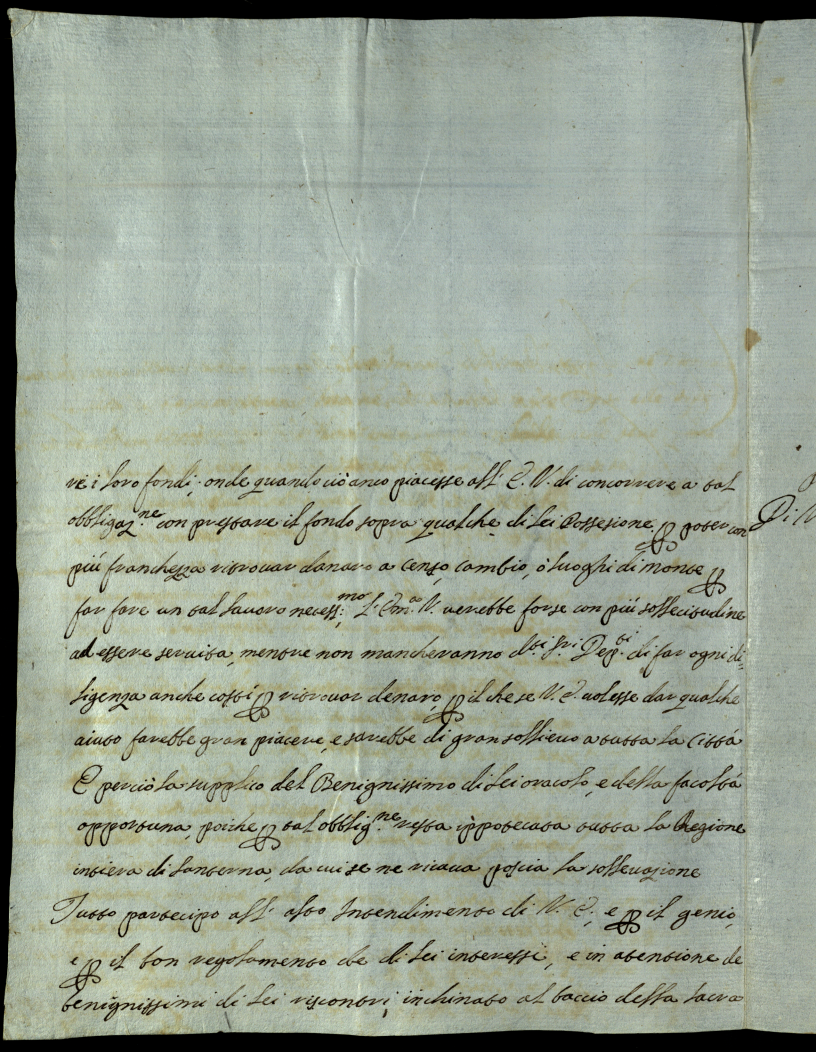 re i loro fondi; onde quando ciò anco piacesse all' E. V. di concorrere a tal
obbligaz.ne con prestare il fondo sopra qualche di Lei Possesione, p poter con
più franchezza ritrovar danaro a censo, cambio, ò luoghi di monte p
far fare un tal lavoro necess:mo L'Em.a V. verebbe forse con più sollecitudine
ad essere servita, mentre non mancheranno d.ti Sri. Dep.ti di far ogni di-
ligenza anche cossì p ritrovar denaro, p il che se V. E. volesse dar qualche
aiuto farebbe gran piacere, e sarebbe di gran sollievo a tutta la Città
E perciò la supplico del Benignissimo di Lei oracolo, e della facoltà
opportuna, poiche p tal obblig.ne resta ippotecata tutta la Regione
intiera di Santerna, da cui se ne ricava poscia la sollevazione
Tutto partecipo all' alto Intendimento di V. E., e p il genio,
e p il bon regolamento de di Lei interessi, e in atensione de
benignissimi di Lei riscontri, inchinato al baccio della sacra
Di V